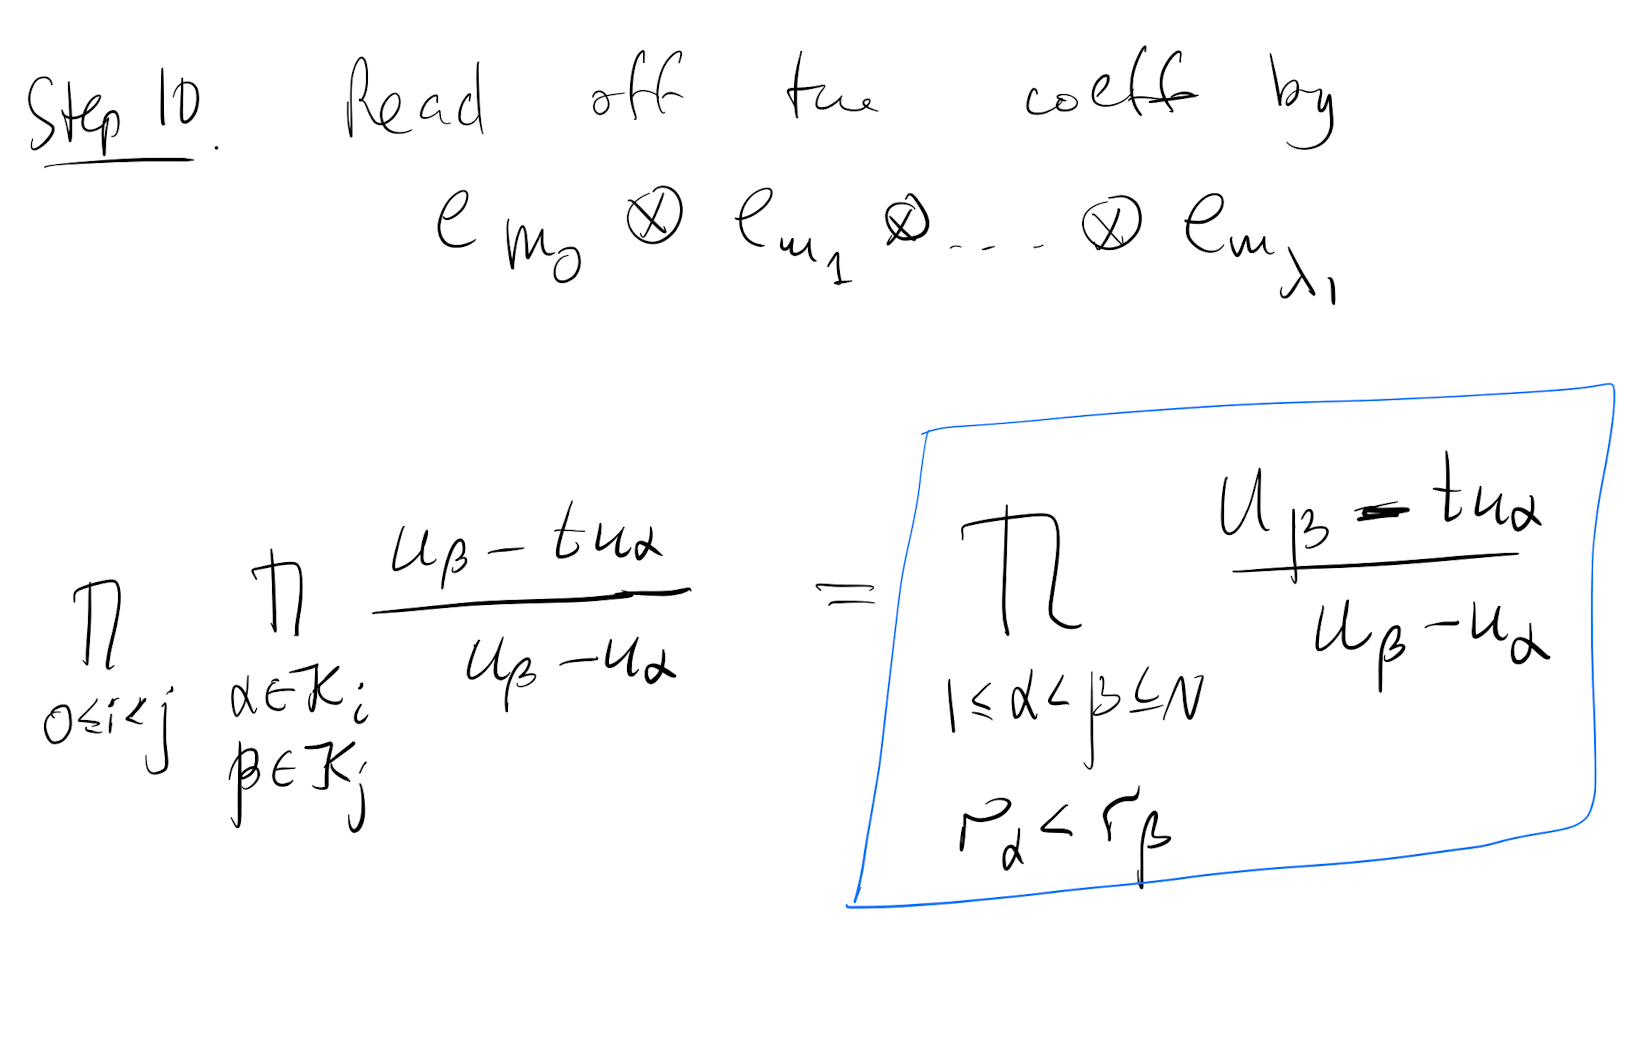 Step 10. Read off the coeff by
e_{m_0} ⊗ e_{m_1} ⊗ .... ⊗ e_{m_{λ_1}}
∏_{0≤i<j} ∏_{α∈K_i β∈K_j} \frac{u_β - tu_α}{u_β - u_α} = ∏_{1≤α<β≤N r_α<r_β} \frac{u_β - tu_α}{u_β - u_α}